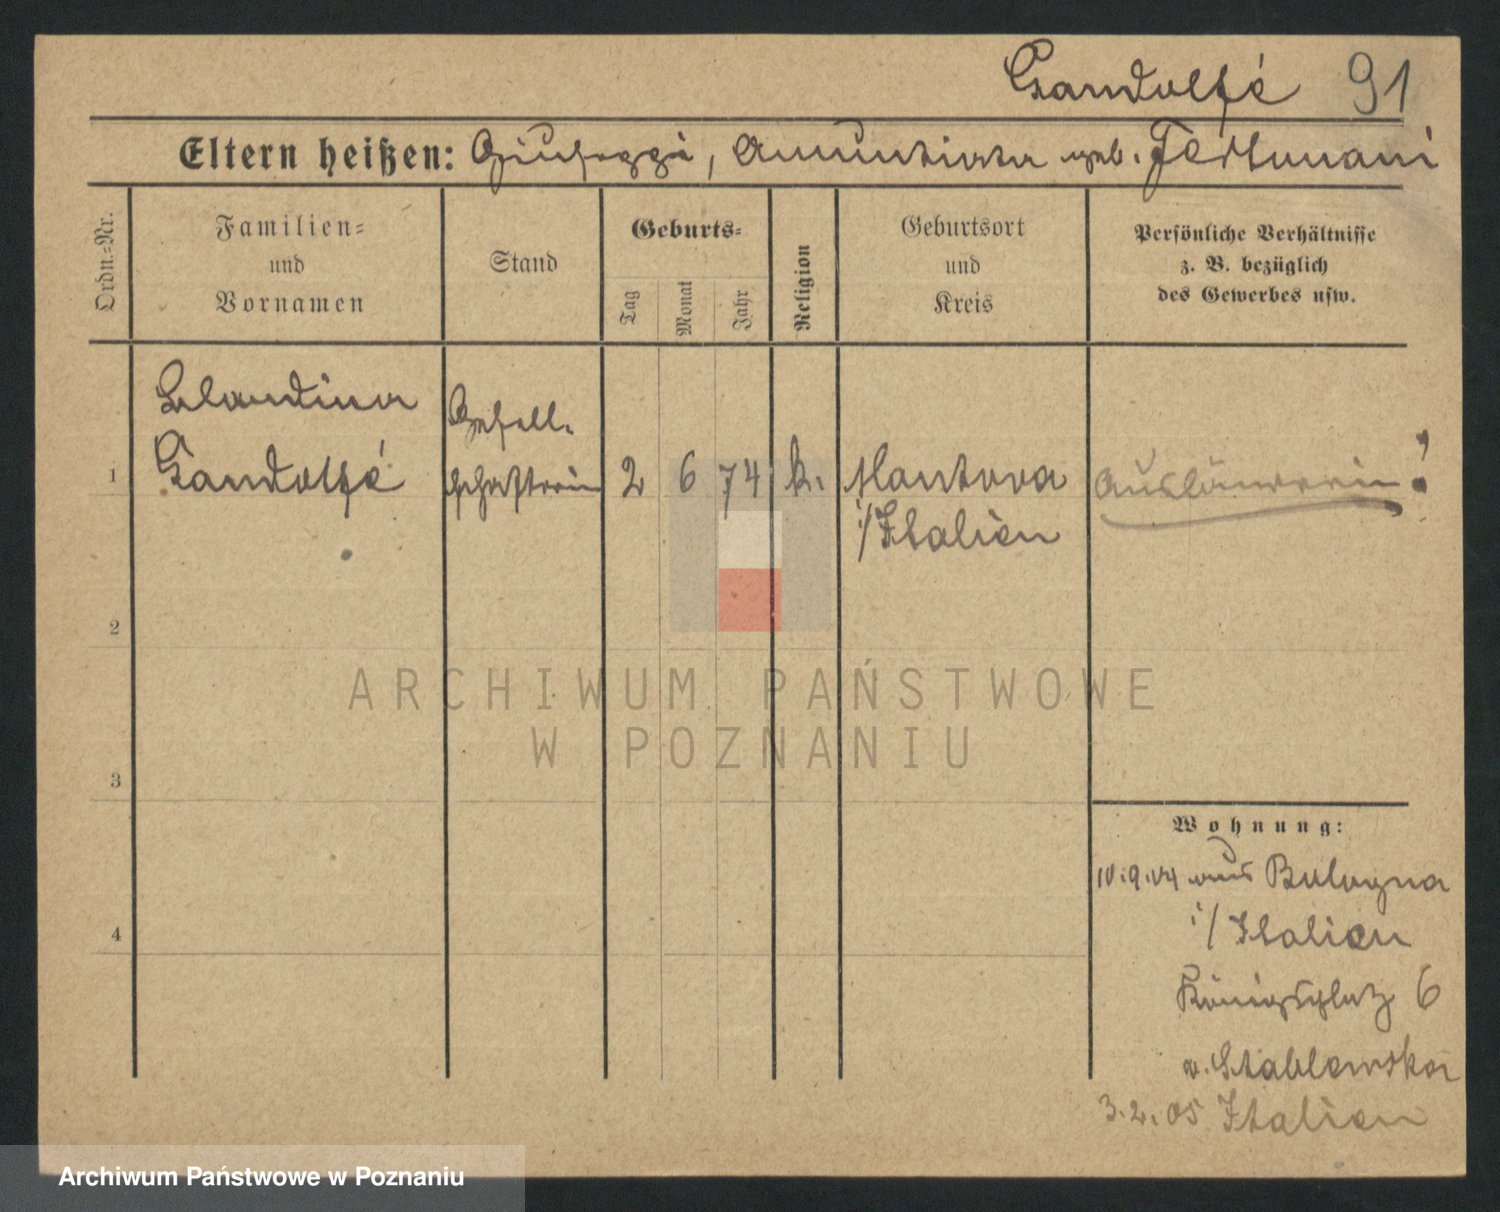 Gandolfi 91
Eltern heißen: Giuseppi, Annuntiata geb. Fertonani
Ordn.-Nr.
Familien-
und
Vornamen
Stand
Geburts-
Tag
Monat
Jahr
Religion
Geburtsort
und
Kreis
Persönliche Verhältnisse
z. B. bezüglich
des Gewerbes usw.
Claudina
Gandolfi
Gesell-
schafterin
1
2 6 74 k. Mantova
i/Italien
Ausländerin!
2
3
4
ARCHIWUM PAŃSTWOWE
W POZNANIU
Wohnung:
10.9.04 aus Bologna
i/Italien
Königsplatz 6
v. Stablewska
3.2.05 Italien
Archiwum Państwowe w Poznaniu